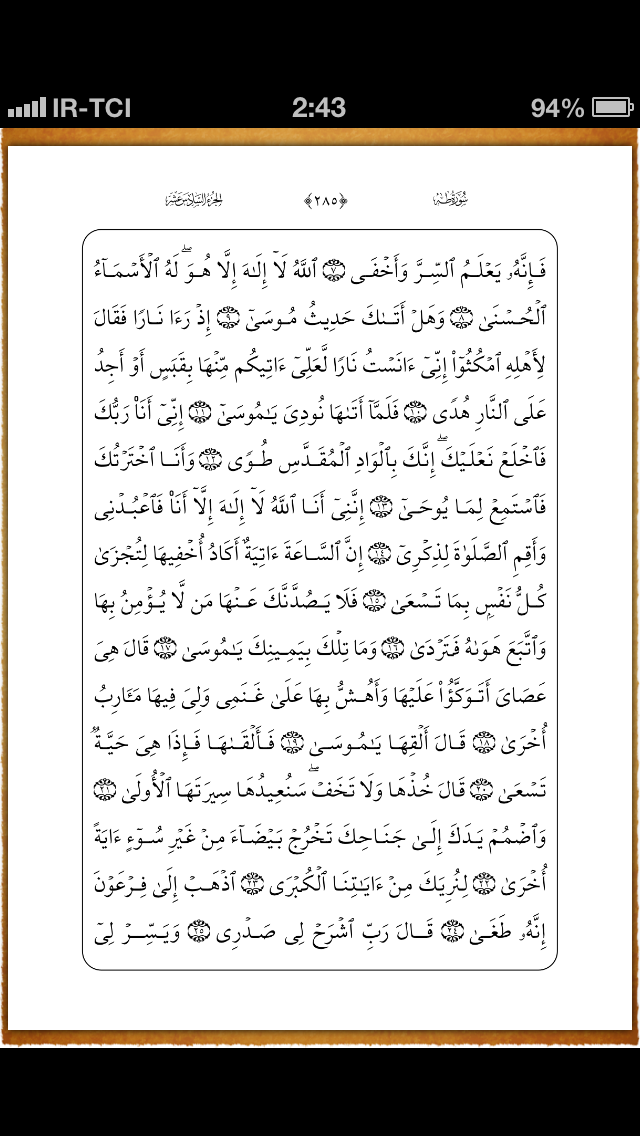 IR-TCI 2:43 94%
سُورَةُ طه ﴿٢٨٥﴾ الجُزءُ السَّادِسَ عَشَرَ
فَإِنَّهُۥ يَعۡلَمُ ٱلسِّرَّ وَأَخۡفَى ٧ ٱللَّهُ لَآ إِلَٰهَ إِلَّا هُوَۖ لَهُ ٱلۡأَسۡمَآءُ
ٱلۡحُسۡنَىٰ ٨ وَهَلۡ أَتَىٰكَ حَدِيثُ مُوسَىٰٓ ٩ إِذۡ رَءَا نَارٗا فَقَالَ
لِأَهۡلِهِ ٱمۡكُثُوٓاْ إِنِّيٓ ءَانَسۡتُ نَارٗا لَّعَلِّيٓ ءَاتِيكُم مِّنۡهَا بِقَبَسٍ أَوۡ أَجِدُ
عَلَى ٱلنَّارِ هُدٗى ١٠ فَلَمَّآ أَتَىٰهَا نُودِيَ يَٰمُوسَىٰٓ ١١ إِنِّيٓ أَنَا۠ رَبُّكَ
فَٱخۡلَعۡ نَعۡلَيۡكَۖ إِنَّكَ بِٱلۡوَادِ ٱلۡمُقَدَّسِ طُوٗى ١٢ وَأَنَا ٱخۡتَرۡتُكَ
فَٱسۡتَمِعۡ لِمَا يُوحَىٰٓ ١٣ إِنَّنِيٓ أَنَا ٱللَّهُ لَآ إِلَٰهَ إِلَّآ أَنَا۠ فَٱعۡبُدۡنِي
وَأَقِمِ ٱلصَّلَوٰةَ لِذِكۡرِيٓ ١٤ إِنَّ ٱلسَّاعَةَ ءَاتِيَةٌ أَكَادُ أُخۡفِيهَا لِتُجۡزَىٰ
كُلُّ نَفۡسِۭ بِمَا تَسۡعَىٰ ١٥ فَلَا يَصُدَّنَّكَ عَنۡهَا مَن لَّا يُؤۡمِنُ بِهَا
وَٱتَّبَعَ هَوَىٰهُ فَتَرۡدَىٰ ١٦ وَمَا تِلۡكَ بِيَمِينِكَ يَٰمُوسَىٰ ١٧ قَالَ هِيَ
عَصَايَ أَتَوَكَّؤُاْ عَلَيۡهَا وَأَهُشُّ بِهَا عَلَىٰ غَنَمِي وَلِيَ فِيهَا مَـَٔارِبُ
أُخۡرَىٰ ١٨ قَالَ أَلۡقِهَا يَٰمُوسَىٰ ١٩ فَأَلۡقَىٰهَا فَإِذَا هِيَ حَيَّةٞ
تَسۡعَىٰ ٢٠ قَالَ خُذۡهَا وَلَا تَخَفۡۖ سَنُعِيدُهَا سِيرَتَهَا ٱلۡأُولَىٰ ٢١
وَٱضۡمُمۡ يَدَكَ إِلَىٰ جَنَاحِكَ تَخۡرُجۡ بَيۡضَآءَ مِنۡ غَيۡرِ سُوٓءٍ ءَايَةً
أُخۡرَىٰ ٢٢ لِنُرِيَكَ مِنۡ ءَايَٰتِنَا ٱلۡكُبۡرَى ٢٣ ٱذۡهَبۡ إِلَىٰ فِرۡعَوۡنَ
إِنَّهُۥ طَغَىٰ ٢٤ قَالَ رَبِّ ٱشۡرَحۡ لِي صَدۡرِي ٢٥ وَيَسِّرۡ لِيٓ